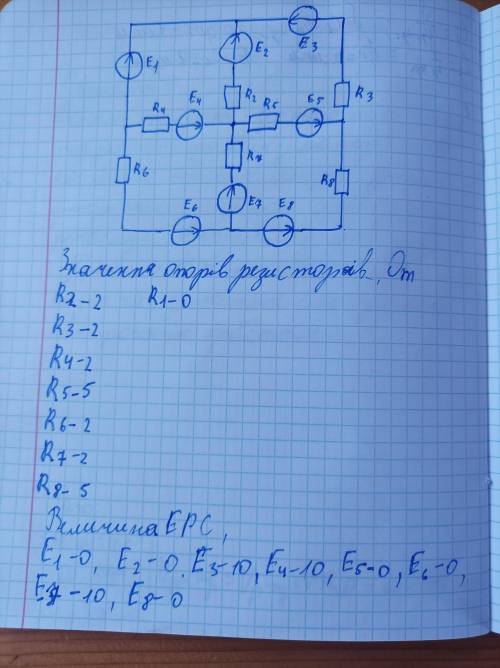 E3
E1
E2
R2
R3
R4
E4
R5
E5
R6
R7
R8
E6
E7
E8
Значення опорів резисторів, Ом
R2-2 R1-0
R3-2
R4-2
R5-5
R6-2
R7-2
R8-5
Величина ЕРС,
E1-0, E2-0. E3-10, E4-10, E5-0, E6-0,
E7-10, E8-0